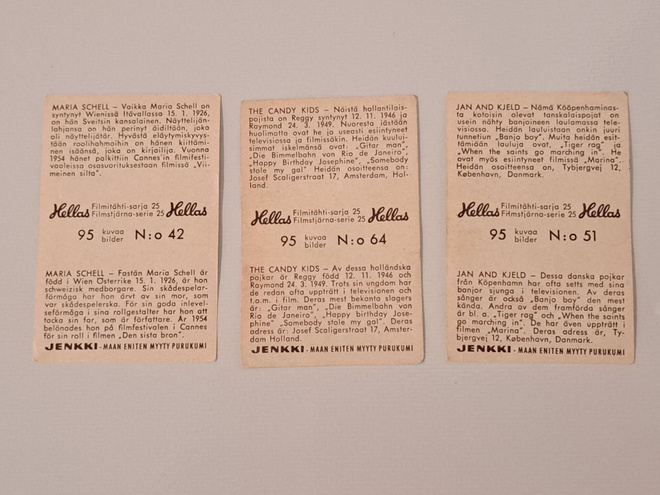 MARIA SCHELL – Vaikka Maria Schell on
syntynyt Wienissä Itävallassa 15. 1. 1926,
on hän Sveitsin kansalainen. Näyttelijän-
lahjansa on hän perinyt äidiltään, joka
oli näyttelijätär. Hyvästä eläytymiskyvys-
tään roolihahmoihin on hänen kiittämi-
nen isäänsä, joka on kirjailija. Vuonna
1954 hänet palkittiin Cannes'in filmifesti-
vaaleissa osasuorituksestaan filmissä „Vii-
meinen silta".
Hellas Filmitähti-sarja 25 Hellas
Filmstjärna-serie 25
95 kuvaa N:o 42
bilder
MARIA SCHELL – Fastän Maria Schell är
född i Wien Österrike 15. 1. 1926, är hon
schweizisk medborgare. Sin skådespelar-
förmåga har hon ärvt av sin mor, som
var skådespelerska. För sin goda inlevel-
seförmåga i sina rollgestalter har hon att
tacka sin far, som är författare. År 1954
belönades hon på filmfestivalen i Cannes
för sin roll i filmen „Den sista bron".
JENKKI - MAAN ENITEN MYYTY PURUKUMI
THE CANDY KIDS – Näistä hollantilais-
pojista on Reggy syntynyt 12. 11. 1946 ja
Raymond 24. 3. 1949. Nuoresta iästään
huolimatta ovat he jo useasti esiintyneet
televisiossa ja filmissäkin. Heidän kuului-
simmat iskelmänsä ovat: „Gitar man",
„Die Bimmelbahn von Rio de Janeiro",
„Happy Birthday Josephine", „Somebody
stole my gal" Heidän osoitteensa on:
Josef Scaligerstraat 17, Amsterdam, Hol-
land.
Hellas Filmitähti-sarja 25 Hellas
Filmstjärna-serie 25
95 kuvaa N:o 64
bilder
THE CANDY KIDS – Av dessa holländska
pojkar är Reggy född 12. 11. 1946 och
Raymond 24. 3. 1949. Trots sin ungdom har
de redan ofta uppträtt i television och
t.o.m. i film. Deras mest bekanta slagers
är: „Gitar man", „Die Bimmelbahn von
Rio de Janeiro", „Happy birthday Jose-
phine" „Somebody stole my gal". Deras
adress är: Josef Scaligerstraat 17, Amster-
dam Holland.
JENKKI - MAAN ENITEN MYYTY PURUKUMI
JAN AND KJELD – Nämä Kööpenhaminas-
ta kotoisin olevat tanskalaispojat on
usein nähty banjoineen laulamassa tele-
visiossa. Heidän lauluistaan onkin juuri
tunnetuin „Banjo boy". Muita heidän esit-
tämiään lauluja ovat, „Tiger rag" ja
„When the saints go marching in". He
ovat myös esiintyneet filmissä „Marina".
Heidän osoitteensa on, Tybjergvej 12,
København, Danmark.
Hellas Filmitähti-sarja 25 Hellas
Filmstjärna-serie 25
95 kuvaa N:o 51
bilder
JAN AND KJELD – Dessa danska pojkar
från Köpenhamn har ofta setts med sina
banjon sjunga i televisionen. Av deras
sånger är också „Banjo boy" den mest
kända. Andra av dem framförda sånger
är bl. a. „Tiger rag" och „When the saints
go marching in". De har även uppträtt i
filmen „Marina". Deras adress är, Ty-
bjergvej 12, København, Danmark.
JENKKI - MAAN ENITEN MYYTY PURUKUMI